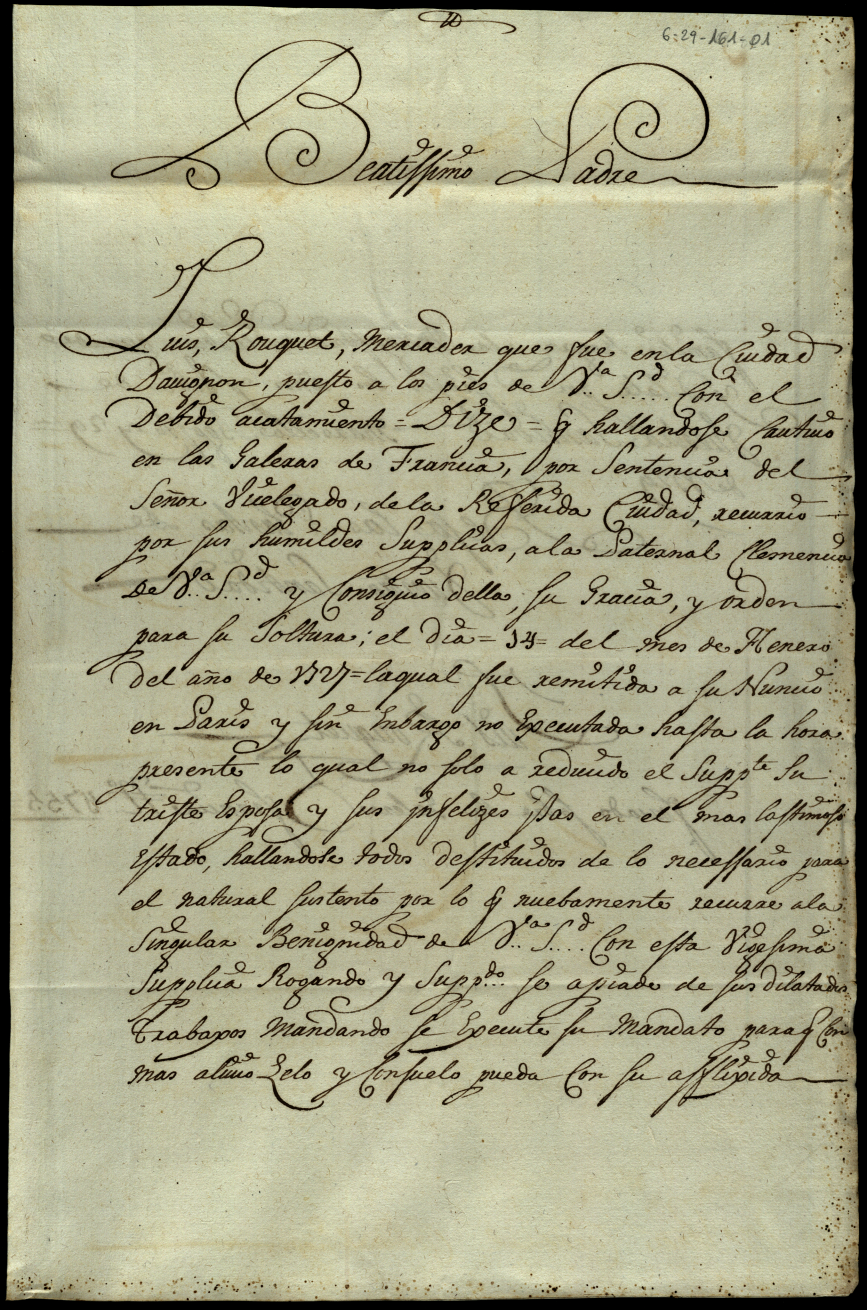 6-29-161-01
Beatissimo Padre
Luis, Rouquet, Mercader que fue en la Ciudad
Davignon, puesto a los pies de V.ª S.…ᵈ Con el
Debido acatamiento = Dize = q hallandose Cautivo
en las Galeras de Francia, por Sentencia del
Señor Vicelegado, de la Refferida Ciudad, recurrio
por sus humildes Supplicas, a la Paternal Clemencia
de V.ª S.…ᵈ y Consiguio della, su Gracia, y orden
para su Soltura; el dia = 14 = del mes de Henero
del año de 1727 = laqual fue remitida a su Nuncio
en Paris y sin Embargo no Executada hasta la hora
presente lo qual no solo a reducido el Suppᵗᵉ Su
triste Esposa y sus jnfelizes jjas en el mas lastimoso
Estado, hallandose todos destituidos de lo necessario para
el natural sustento por lo q nuebamente recurre a la
Singular Benignidad de V.ª S.…ᵈ Con esta Vigesima
Supplica Rogando y Suppᵈᵒ… se apiade de sus dilatados
Trabaxos Mandando se Execute su Mandato para q Con
mas alivio Zelo y Consuelo pueda Con su afflixida